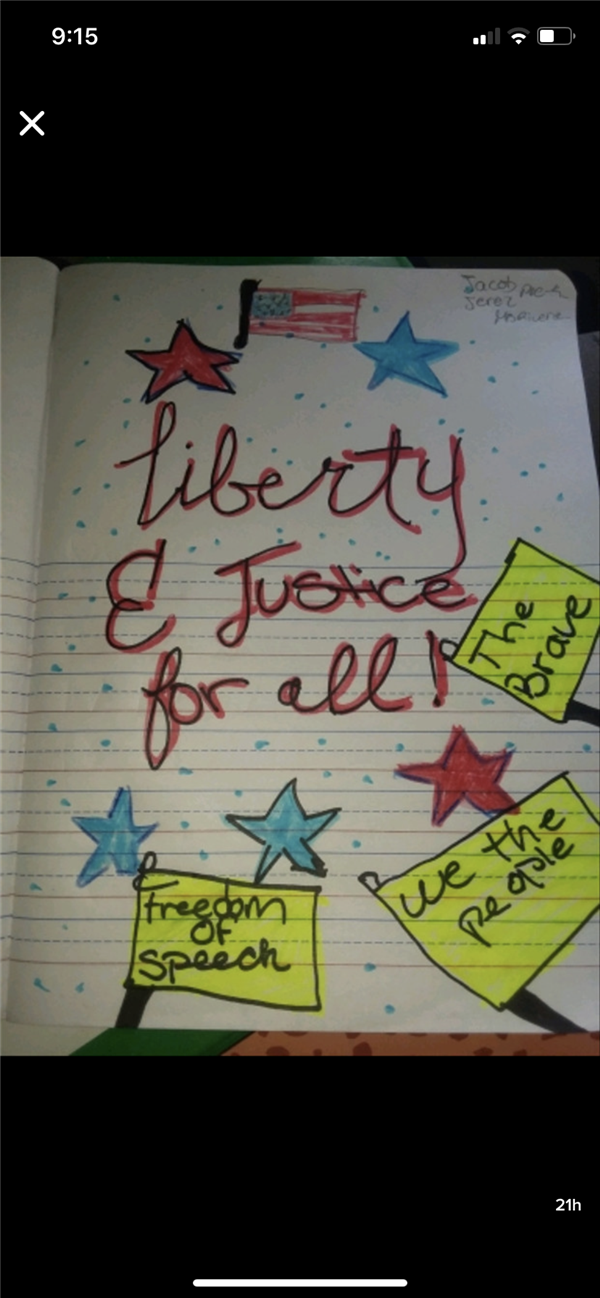 9:15
Jacob
Jerez
liberty
& Justice
for all!
The
Brave
We the
people
Freedom
of
speech
21h